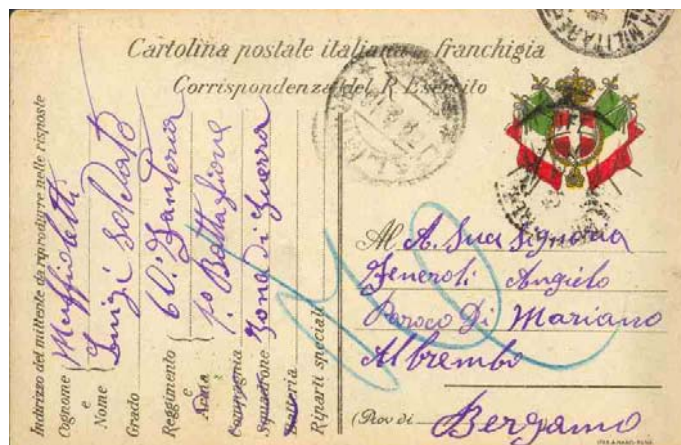 Cartolina postale italiana in franchigia
Corrispondenza del R. Esercito
Indirizzo del mittente da riprodurre nelle risposte
Cognome
e
Nome
Luigi Soldato
Grado
Reggimento 60.º Fanteria
e
Arma
1º Battaglione
Compagnia
Squadrone Zona di Guerra
Batteria
Riparti speciali
Al A. Sua Signoria
Angielo
Paroco Di Mariano
Al brembo
(Prov di Bergamo